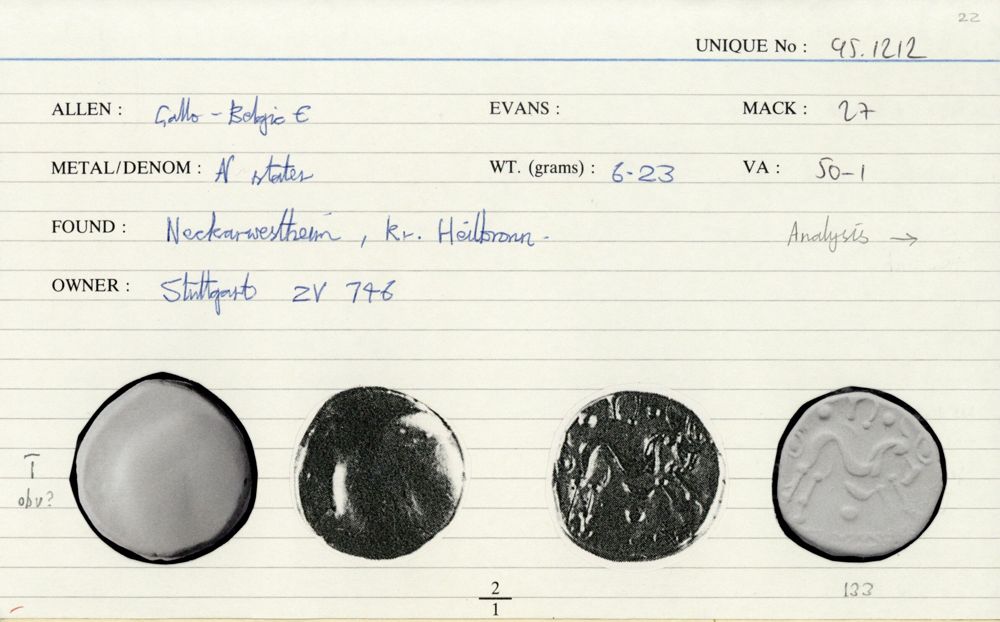 22
UNIQUE No : 95.1212
ALLEN : Gallo-Belgic E EVANS : MACK : 27
METAL/DENOM : N stater WT. (grams) : 6.23 VA : 50-1
FOUND : Neckarwestheim, Kr. Heilbronn. Analysis →
OWNER : Stuttgart ZV 746
obv?
2
1
133